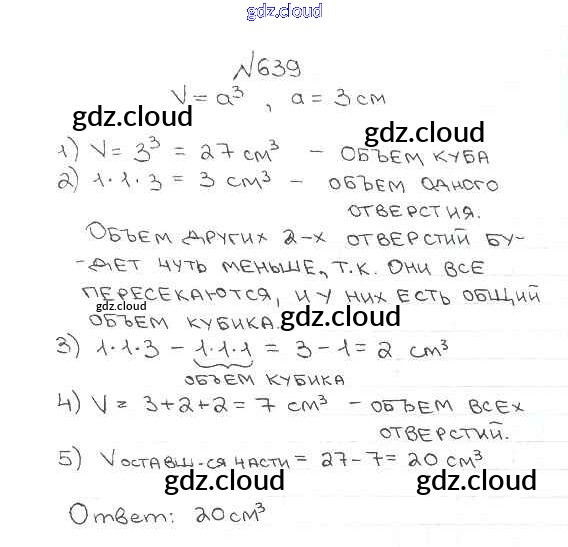 gdz.cloud
№639
V = a³, a = 3 см
gdz.cloud
gdz.cloud
1) V = 3³ = 27 см³ – ОБЪЕМ КУБА
2) 1·1·3 = 3 см³ – ОБЪЕМ ОДНОГО
ОТВЕРСТИЯ.
ОБЪЕМ ДРУГИХ 2-х ОТВЕРСТИЙ БУ-
-ДЕТ ЧУТЬ МЕНЬШЕ, Т.К. ОНИ ВСЕ
ПЕРЕСЕКАЮТСЯ, И У НИХ ЕСТЬ ОБЩИЙ
gdz.cloud
ОБЪЕМ КУБИКА.
gdz.cloud
3) 1·1·3 – 1·1·1 = 3 – 1 = 2 см³
ОБЪЕМ КУБИКА
4) V = 3+2+2 = 7 см³ – ОБЪЕМ ВСЕХ
ОТВЕРСТИЙ.
5) V ОСТАВШ-СЯ ЧАСТИ = 27–7 = 20 см³
gdz.cloud
gdz.cloud
Ответ: 20 см³